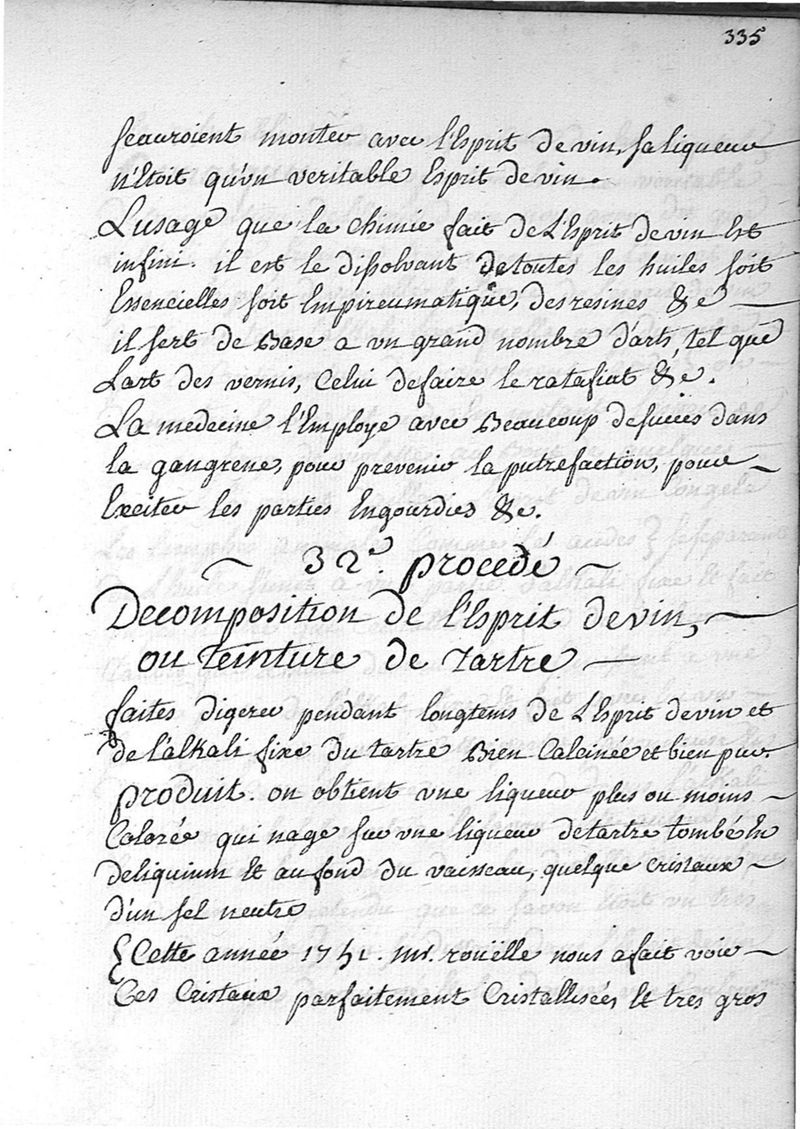 335
scauroient monter avec l'Esprit de vin, sa liqueur
n'Etoit qu'un veritable Esprit de vin.
Lusage que la chimie fait de L'Esprit de vin Est
infini. il est le dissolvant de toutes les huiles soit
Essencielles soit Empireumatique, des resines &c
il sert de Base a un grand nombre d'arts, tel que
Lart des vernis, Celui de faire le ratafiat &c.
La medecine l'Employe avec Beaucoup de succès dans
la gangrene, pour prevenir la putrefaction, pour
Exciter les parties Engourdies &c.
32e. procedé
Decomposition de l'Esprit de vin,
ou Teinture de Tartre
faites digerer pendant longtems de L'Esprit de vin et
de l'alkali fixe du tartre Bien Calcinée et bien pur.
produit. on obtient une liqueur plus ou moins
Colorée qui nage sur une liqueur de tartre tombé En
deliquium Et au fond du vaisseau, quelque cristaux
d'un sel neutre
{ Cette année 1751. mr. rouëlle nous a fait voir
Ces Cristaux parfaitement Cristallisées Et tres gros